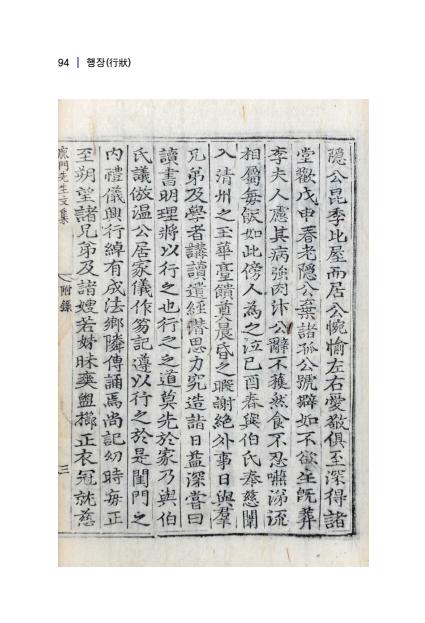 94 | 행장(行狀)
隱公昆季比屋而居公惋愉左右愛敬俱至深得諸
堂歡戊申春老隱公棄諸孤公號擗如不欲生旣葬
李夫人慮其病強肉沛公辭不獲然食不忍嚥涕泣
相屬每飯如此傍人為之泣己酉春與伯氏奉慈闈
入清州之玉華臺饋奠晨昏之暇謝絶外事日與羣
兄弟及學者講讀遺經潛思力究造詣日益深嘗曰
讀書明理將以行之也行之之道莫先於家乃與伯
氏議倣溫公居家儀作笏記遵以行之於是閨門之
內禮儀興行綽有成法鄉隣傳誦焉尚記幼時每正
至朔望諸兄弟及諸嫂若姊昧爽盥櫛正衣冠就慈
鹿門先生文集
附錄
三